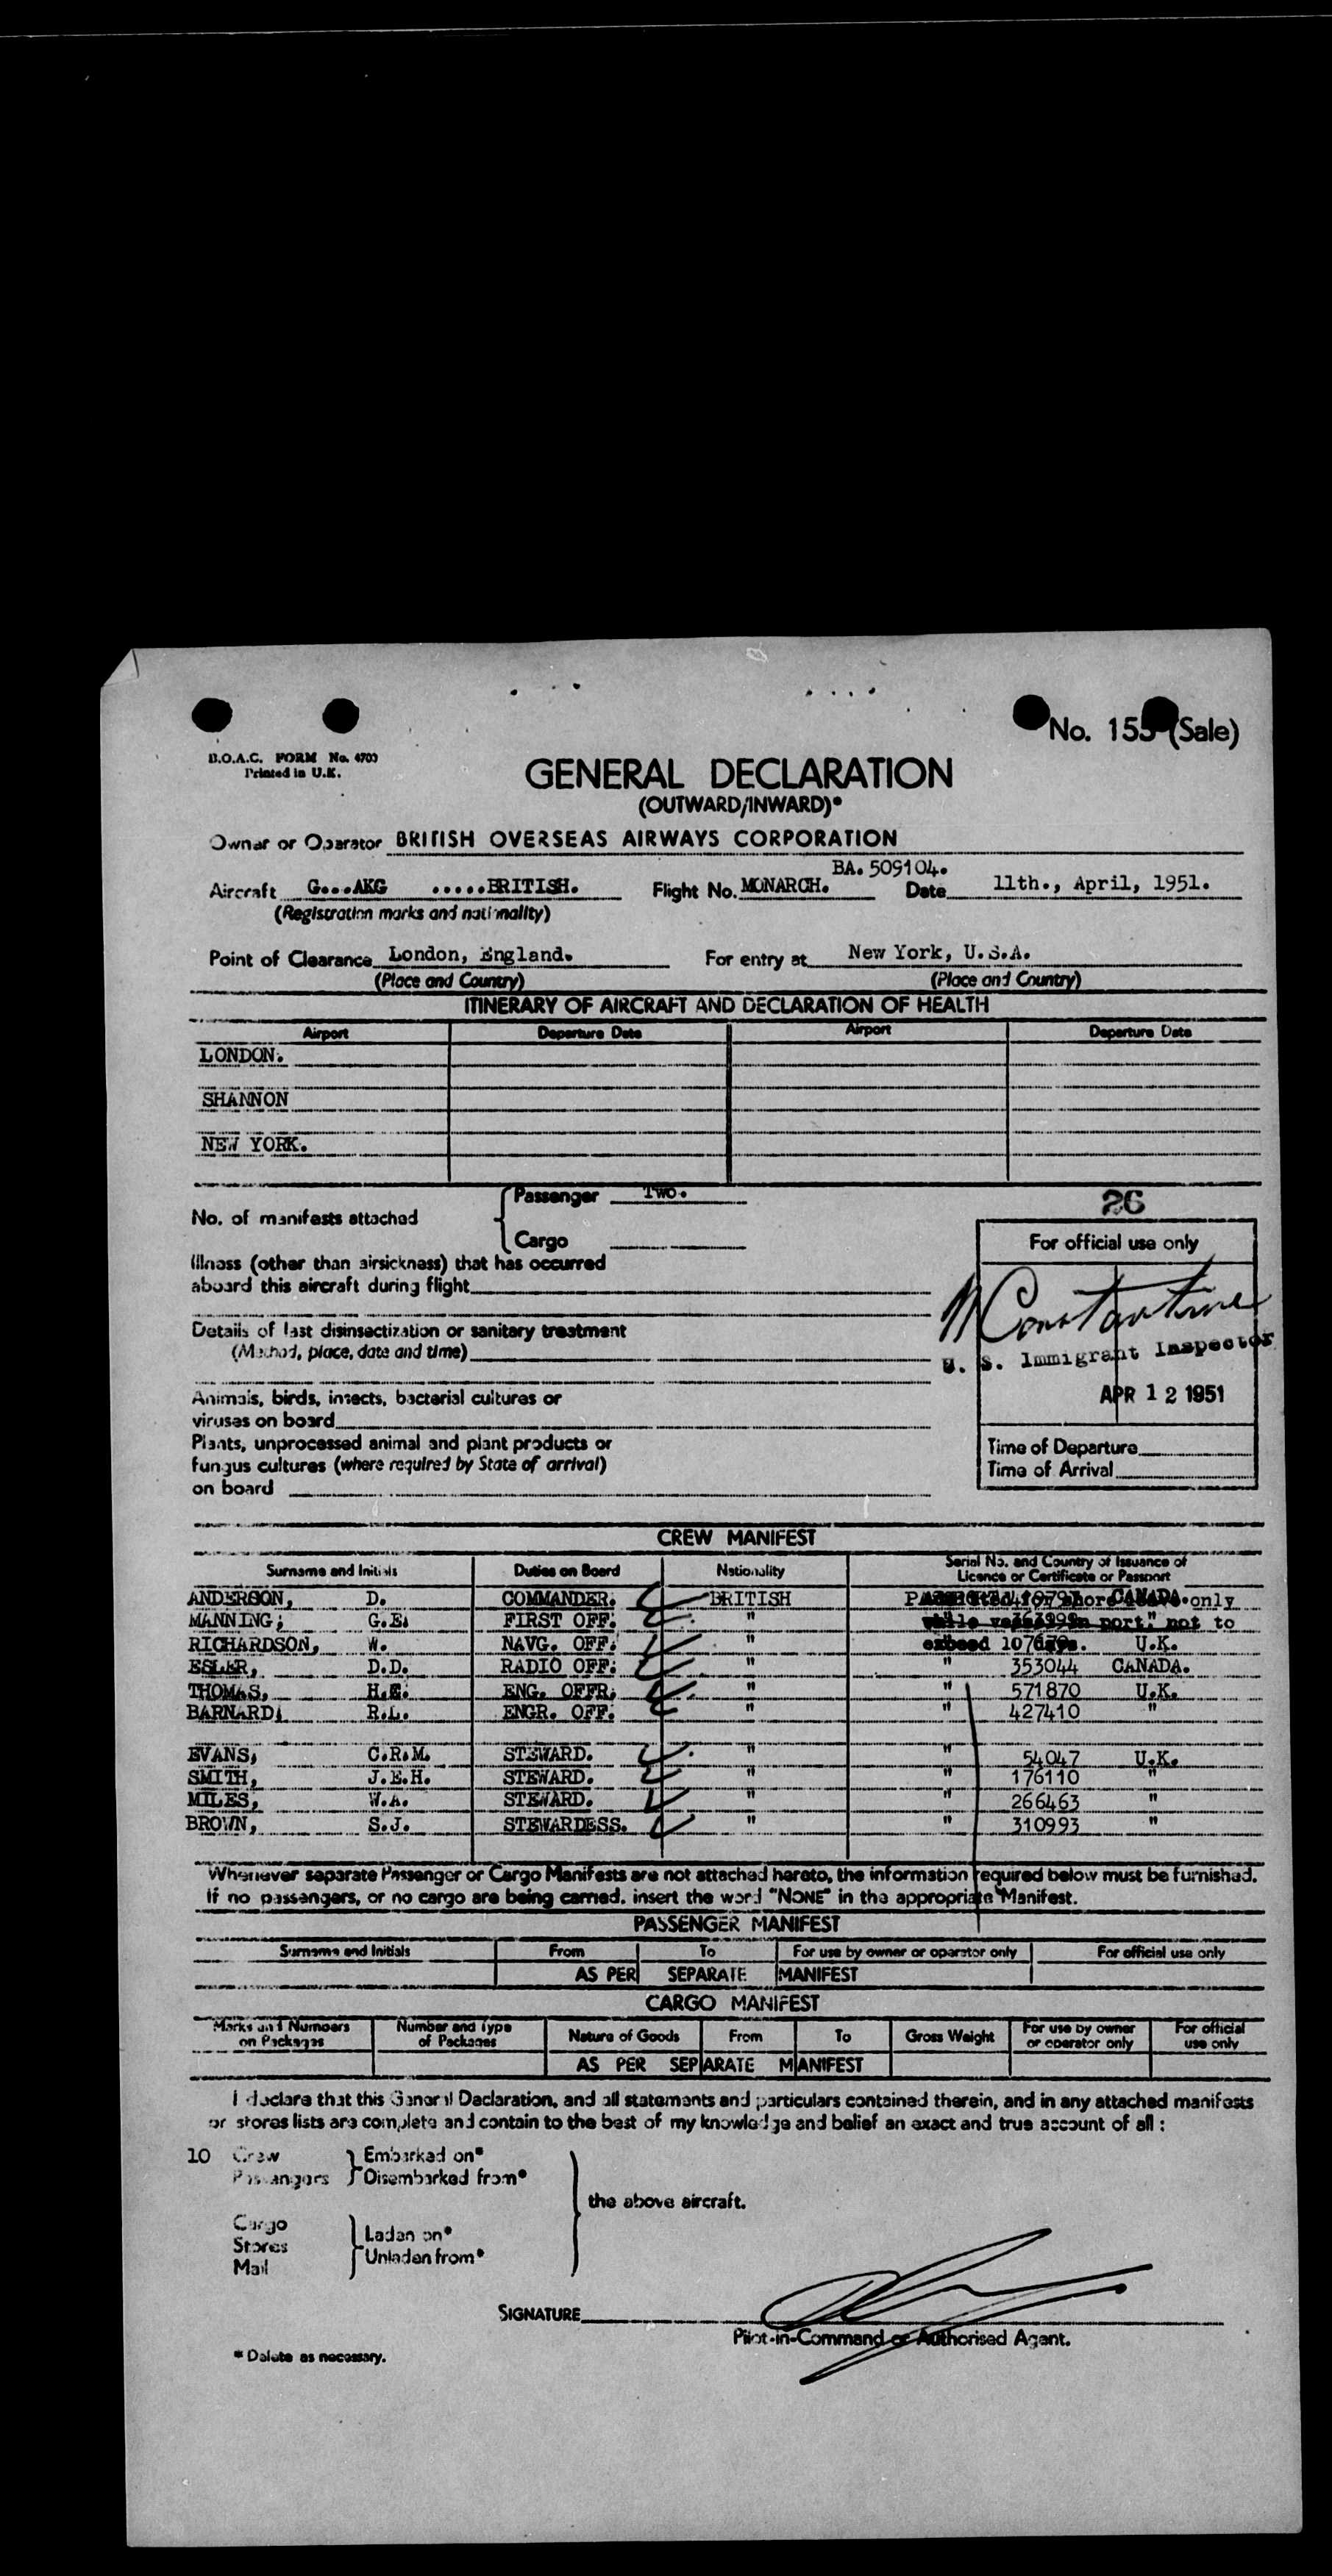 No. 155 (Sale)
B.O.A.C. FORM No. 4703
Printed in U.K.
GENERAL DECLARATION
(OUTWARD/INWARD)*
Owner or Operator BRITISH OVERSEAS AIRWAYS CORPORATION
BA. 509104.
Aircraft G...AKG .....BRITISH. Flight No. MONARCH. Date 11th., April, 1951.
(Registration marks and nationality)
Point of Clearance London, England. For entry at New York, U.S.A.
(Place and Country) (Place and Country)
ITINERARY OF AIRCRAFT AND DECLARATION OF HEALTH
Airport Departure Date Airport Departure Date
LONDON.
SHANNON
NEW YORK.
No. of manifests attached
Passenger TWO.
Cargo
26
For official use only
Illness (other than airsickness) that has occurred
aboard this aircraft during flight
Details of last disinsectization or sanitary treatment
(Method, place, date and time)
Constantine
U. S. Immigrant Inspector
APR 12 1951
Animals, birds, insects, bacterial cultures or
viruses on board
Plants, unprocessed animal and plant products or
fungus cultures (where required by State of arrival)
on board
Time of Departure
Time of Arrival
CREW MANIFEST
Surname and Initials Duties on Board Nationality Serial No. and Country of Issuance of
Licence or Certificate or Passport
ANDERSON, D. COMMANDER. BRITISH CANADA. only
MANNING; G.E. FIRST OFF. " while in port" not to
RICHARDSON, W. NAVG. OFF. " exceed U.K.
ESLER, D.D. RADIO OFF. " " 353044 CANADA.
THOMAS, H.E. ENG. OFFR. " " 571870 U.K.
BARNARD, R.L. ENGR. OFF. " " 427410 "
EVANS, C.R.M. STEWARD. " " 54047 U.K.
SMITH, J.E.H. STEWARD. " " 176110 "
MILES, W.A. STEWARD. " " 266463 "
BROWN, S.J. STEWARDESS. " " 310993 "
Whenever separate Passenger or Cargo Manifests are not attached hereto, the information required below must be furnished.
If no passengers, or no cargo are being carried, insert the word "NONE" in the appropriate Manifest.
PASSENGER MANIFEST
Surname and Initials From To For use by owner or operator only For official use only
AS PER SEPARATE MANIFEST
CARGO MANIFEST
Marks and Numbers on Packages Number and Type of Packages Nature of Goods From To Gross Weight For use by owner or operator only For official use only
AS PER SEPARATE MANIFEST
I declare that this General Declaration, and all statements and particulars contained therein, and in any attached manifests
or stores lists are complete and contain to the best of my knowledge and belief an exact and true account of all :
10 Crew Embarked on*
Passengers Disembarked from*
the above aircraft.
Cargo
Stores Laden on*
Mail Unladen from*
SIGNATURE
Pilot-in-Command or Authorised Agent.
* Delete as necessary.